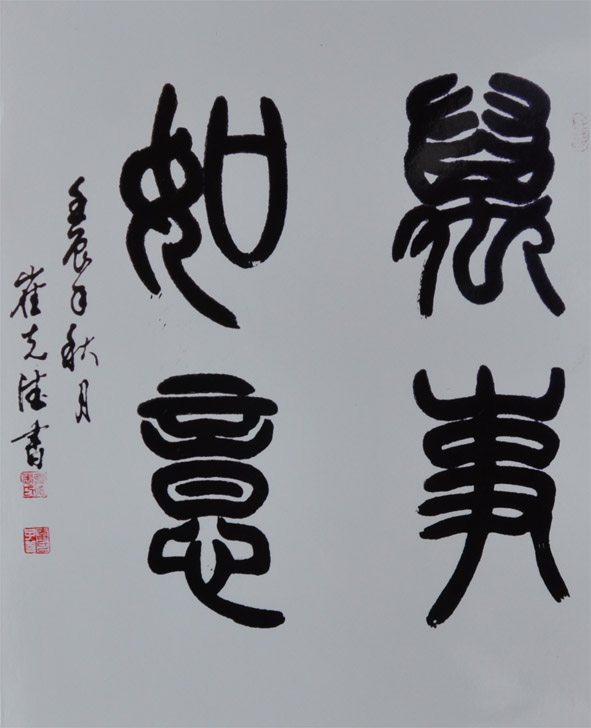 萬事
如意
壬辰年秋月
崔克陆書